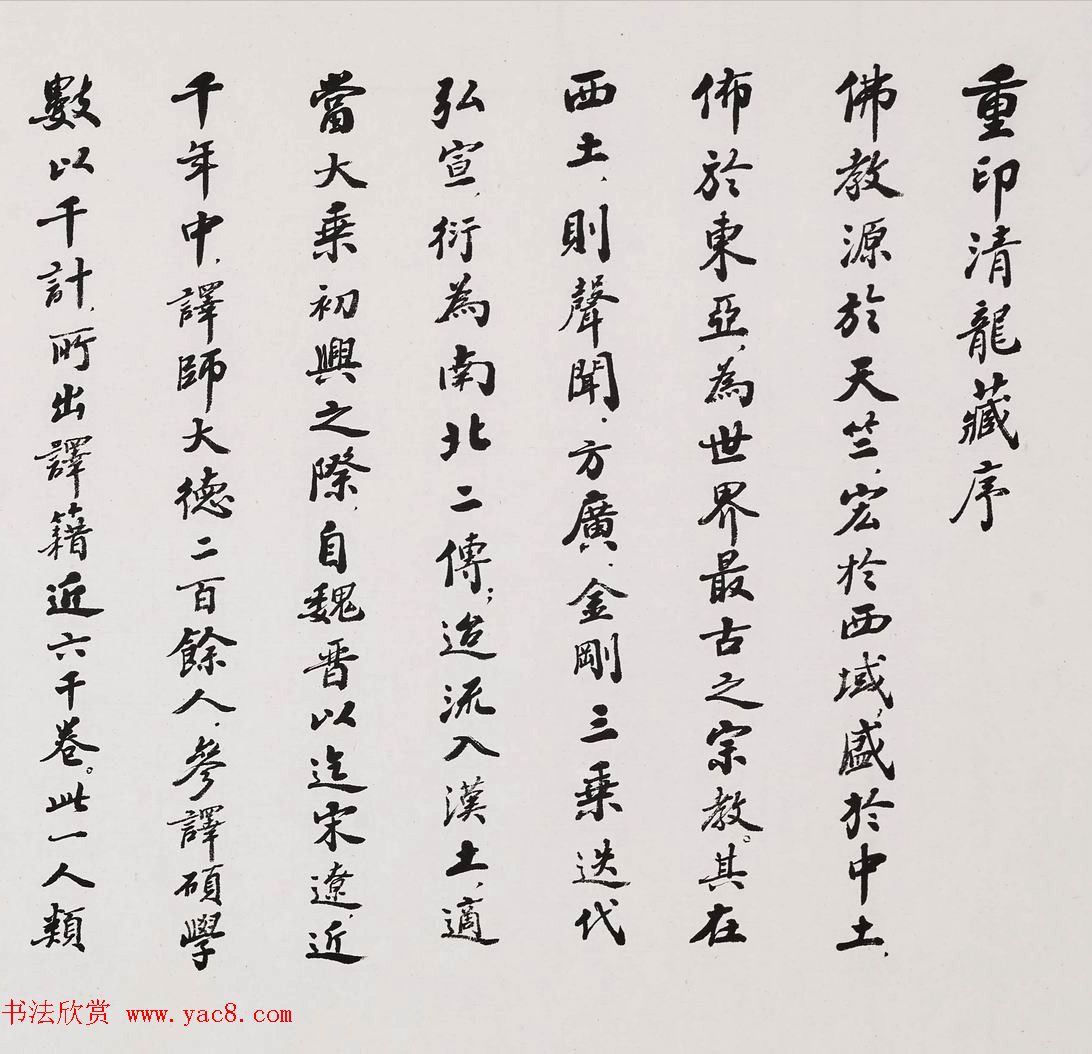 重印清龍藏序
佛教源於天竺，宏於西域，盛於中土，
佈於東亞，為世界最古之宗教。其在
西土，則聲聞、方廣、金剛三乘迭代
弘宣，衍為南北二傳；迨流入漢土，適
當大乘初興之際，自魏晋以迄宋遼，近
千年中，譯師大德二百餘人，參譯碩學
數以千計，所出譯籍近六千卷。此一人類
书法欣赏 www.yac8.com